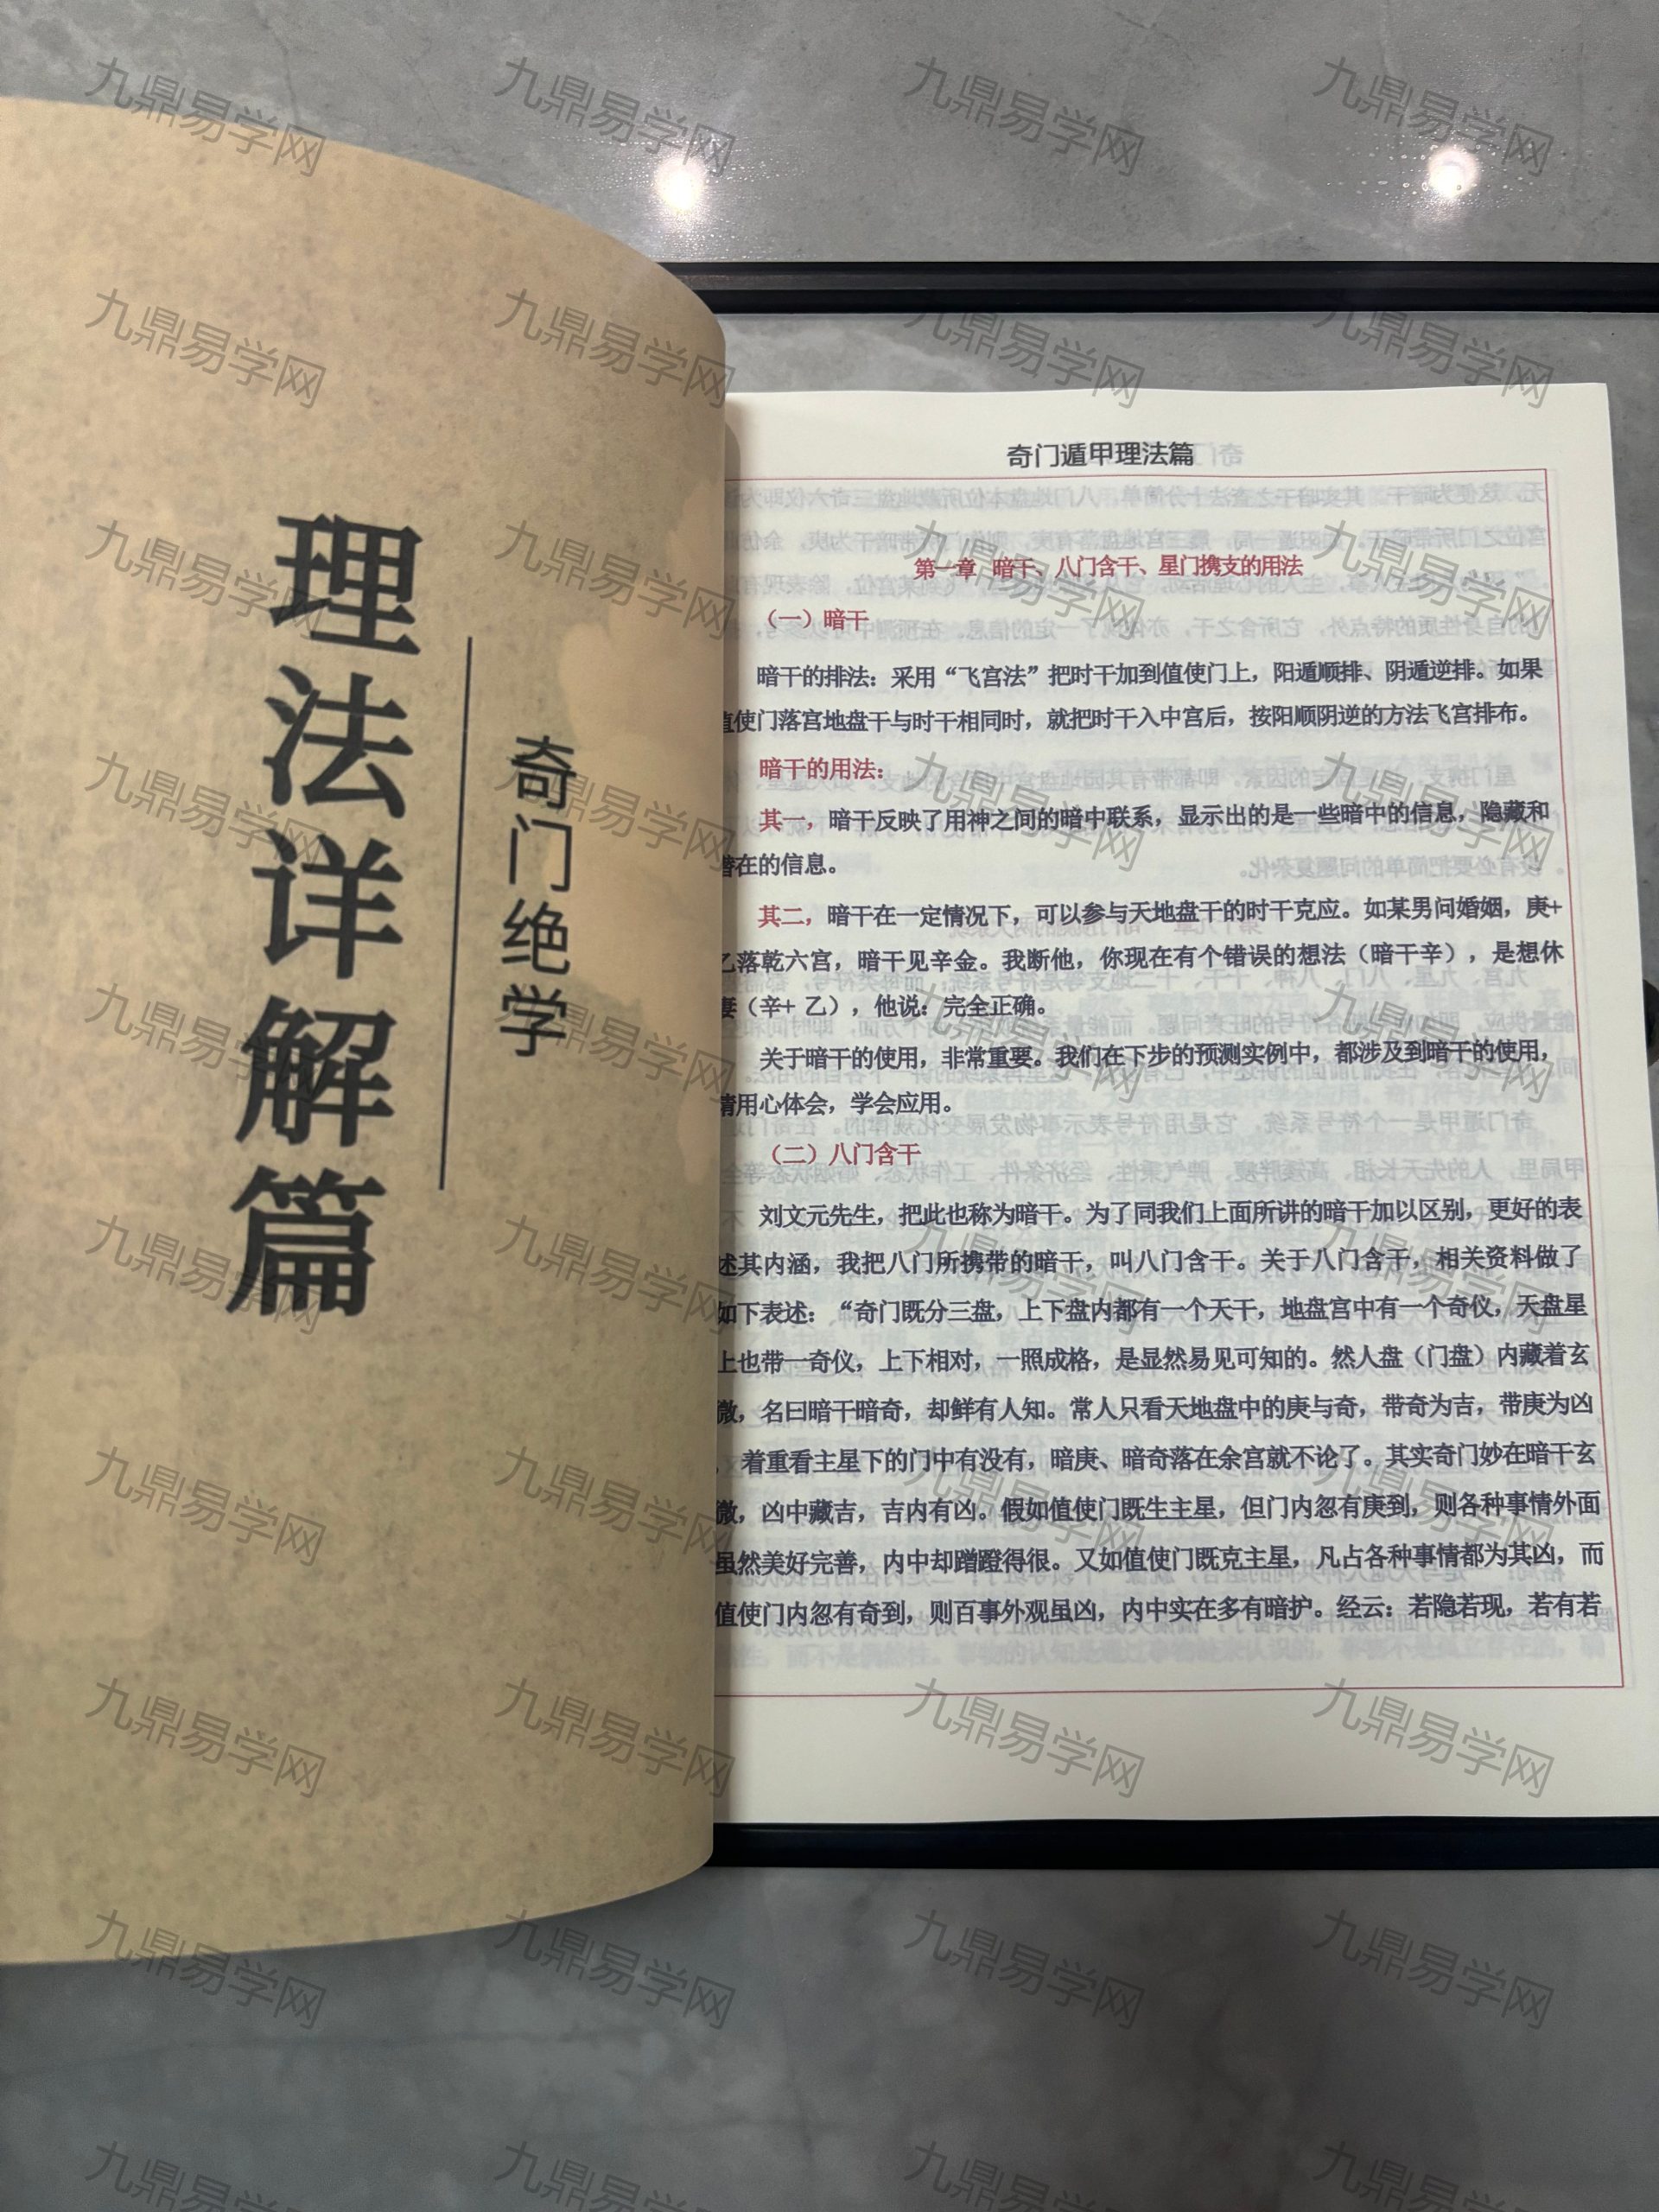 奇门绝学
理法详解篇
奇门遁甲理法篇
第一章 暗干、八门含干、星门携支的用法
（一）暗干
暗干的排法：采用“飞宫法”把时干加到值使门上，阳遁顺排、阴遁逆排。如果
值使门落宫地盘干与时干相同时，就把时干入中宫后，按阳顺阴逆的方法飞宫排布。
暗干的用法：
其一，暗干反映了用神之间的暗中联系，显示出的是一些暗中的信息，隐藏和
潜在的信息。
其二，暗干在一定情况下，可以参与天地盘干的时干克应。如某男问婚姻，庚+
乙落乾六宫，暗干见辛金。我断他，你现在有个错误的想法（暗干辛），是想休
妻（辛+ 乙），他说：完全正确。
关于暗干的使用，非常重要。我们在下步的预测实例中，都涉及到暗干的使用，
请用心体会，学会应用。
（二）八门含干
刘文元先生，把此也称为暗干。为了同我们上面所讲的暗干加以区别，更好的表
述其内涵，我把八门所携带的暗干，叫八门含干。关于八门含干，相关资料做了
如下表述：“奇门既分三盘，上下盘内都有一个天干，地盘宫中有一个奇仪，天盘星
上也带一奇仪，上下相对，一照成格，是显然易见可知的。然人盘（门盘）内藏着玄
微，名曰暗干暗奇，却鲜有人知。常人只看天地盘中的庚与奇，带奇为吉，带庚为凶
，着重看主星下的门中有没有，暗庚、暗奇落在余宫就不论了。其实奇门妙在暗干玄
微，凶中藏吉，吉内有凶。假如值使门既生主星，但门内忽有庚到，则各种事情外面
虽然美好完善，内中却蹭蹬得很。又如值使门既克主星，凡占各种事情都为其凶，而
值使门内忽有奇到，则百事外观虽凶，内中实在多有暗护。经云：若隐若现，若有若
九鼎易学网